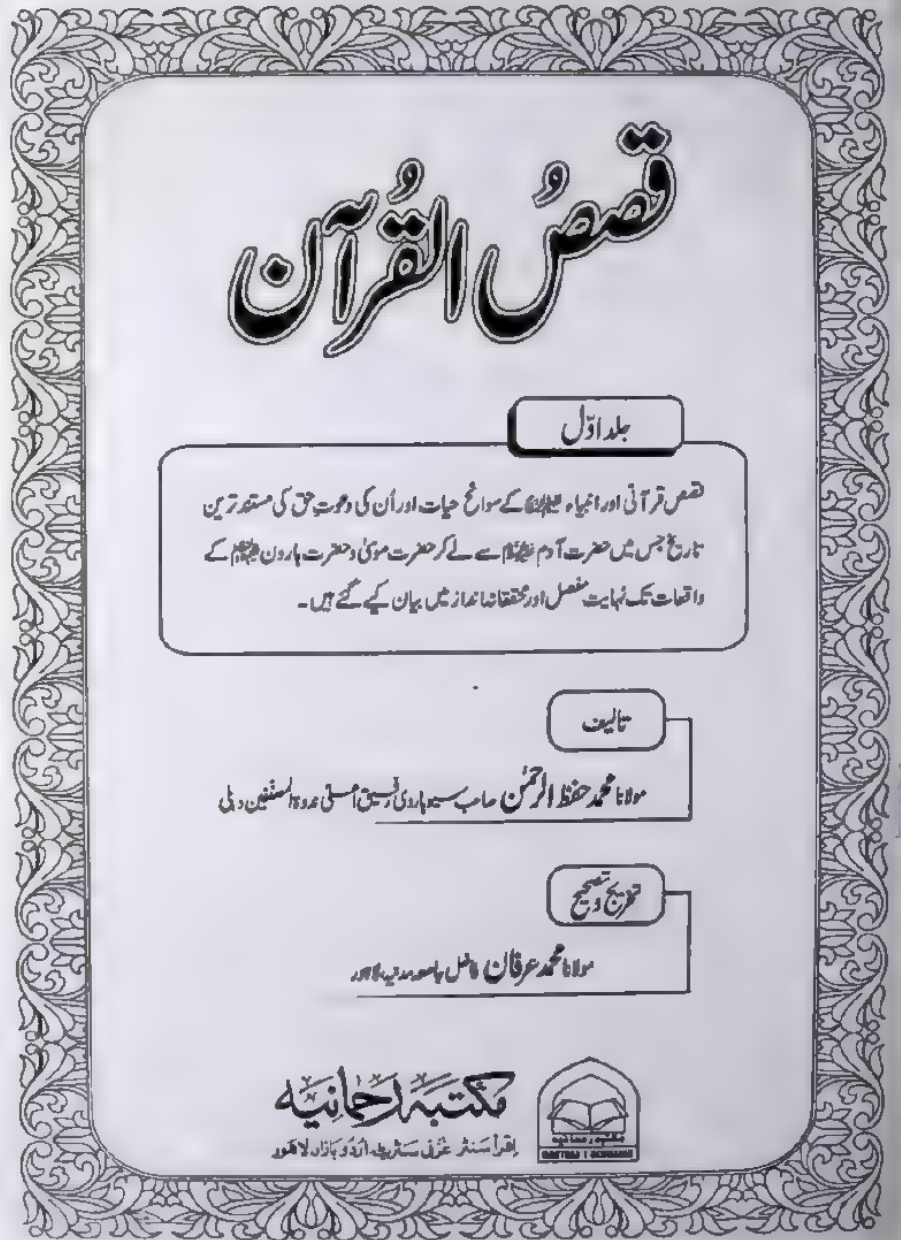 قصصُ القُرآن
جلد اوّل
قصص قرآنی اور انبیاء علیہم السلام کے سوانح حیات اور اُن کی دعوتِ حق کی مستند ترین
تاریخ جس میں حضرت آدم علیہ السلام سے لے کر حضرت موسیٰ و حضرت ہارون علیہما السلام کے
واقعات تک نہایت مفصل اور محققانہ انداز میں بیان کیے گئے ہیں۔
تالیف
مولانا محمد حفظ الرحمٰن صاحب سیوہاروی رفیق اعلیٰ ندوۃ المصنفین دہلی
تخریج و تصحیح
مولانا محمد عرفان فاضل جامعہ مدنیہ، لاہور
مکتبہ رحمانیہ
اِقرأ سَنٹر غَزنی سَٹریٹ اُردُو بَازار لاهَور
مکتبہ رحمانیہ